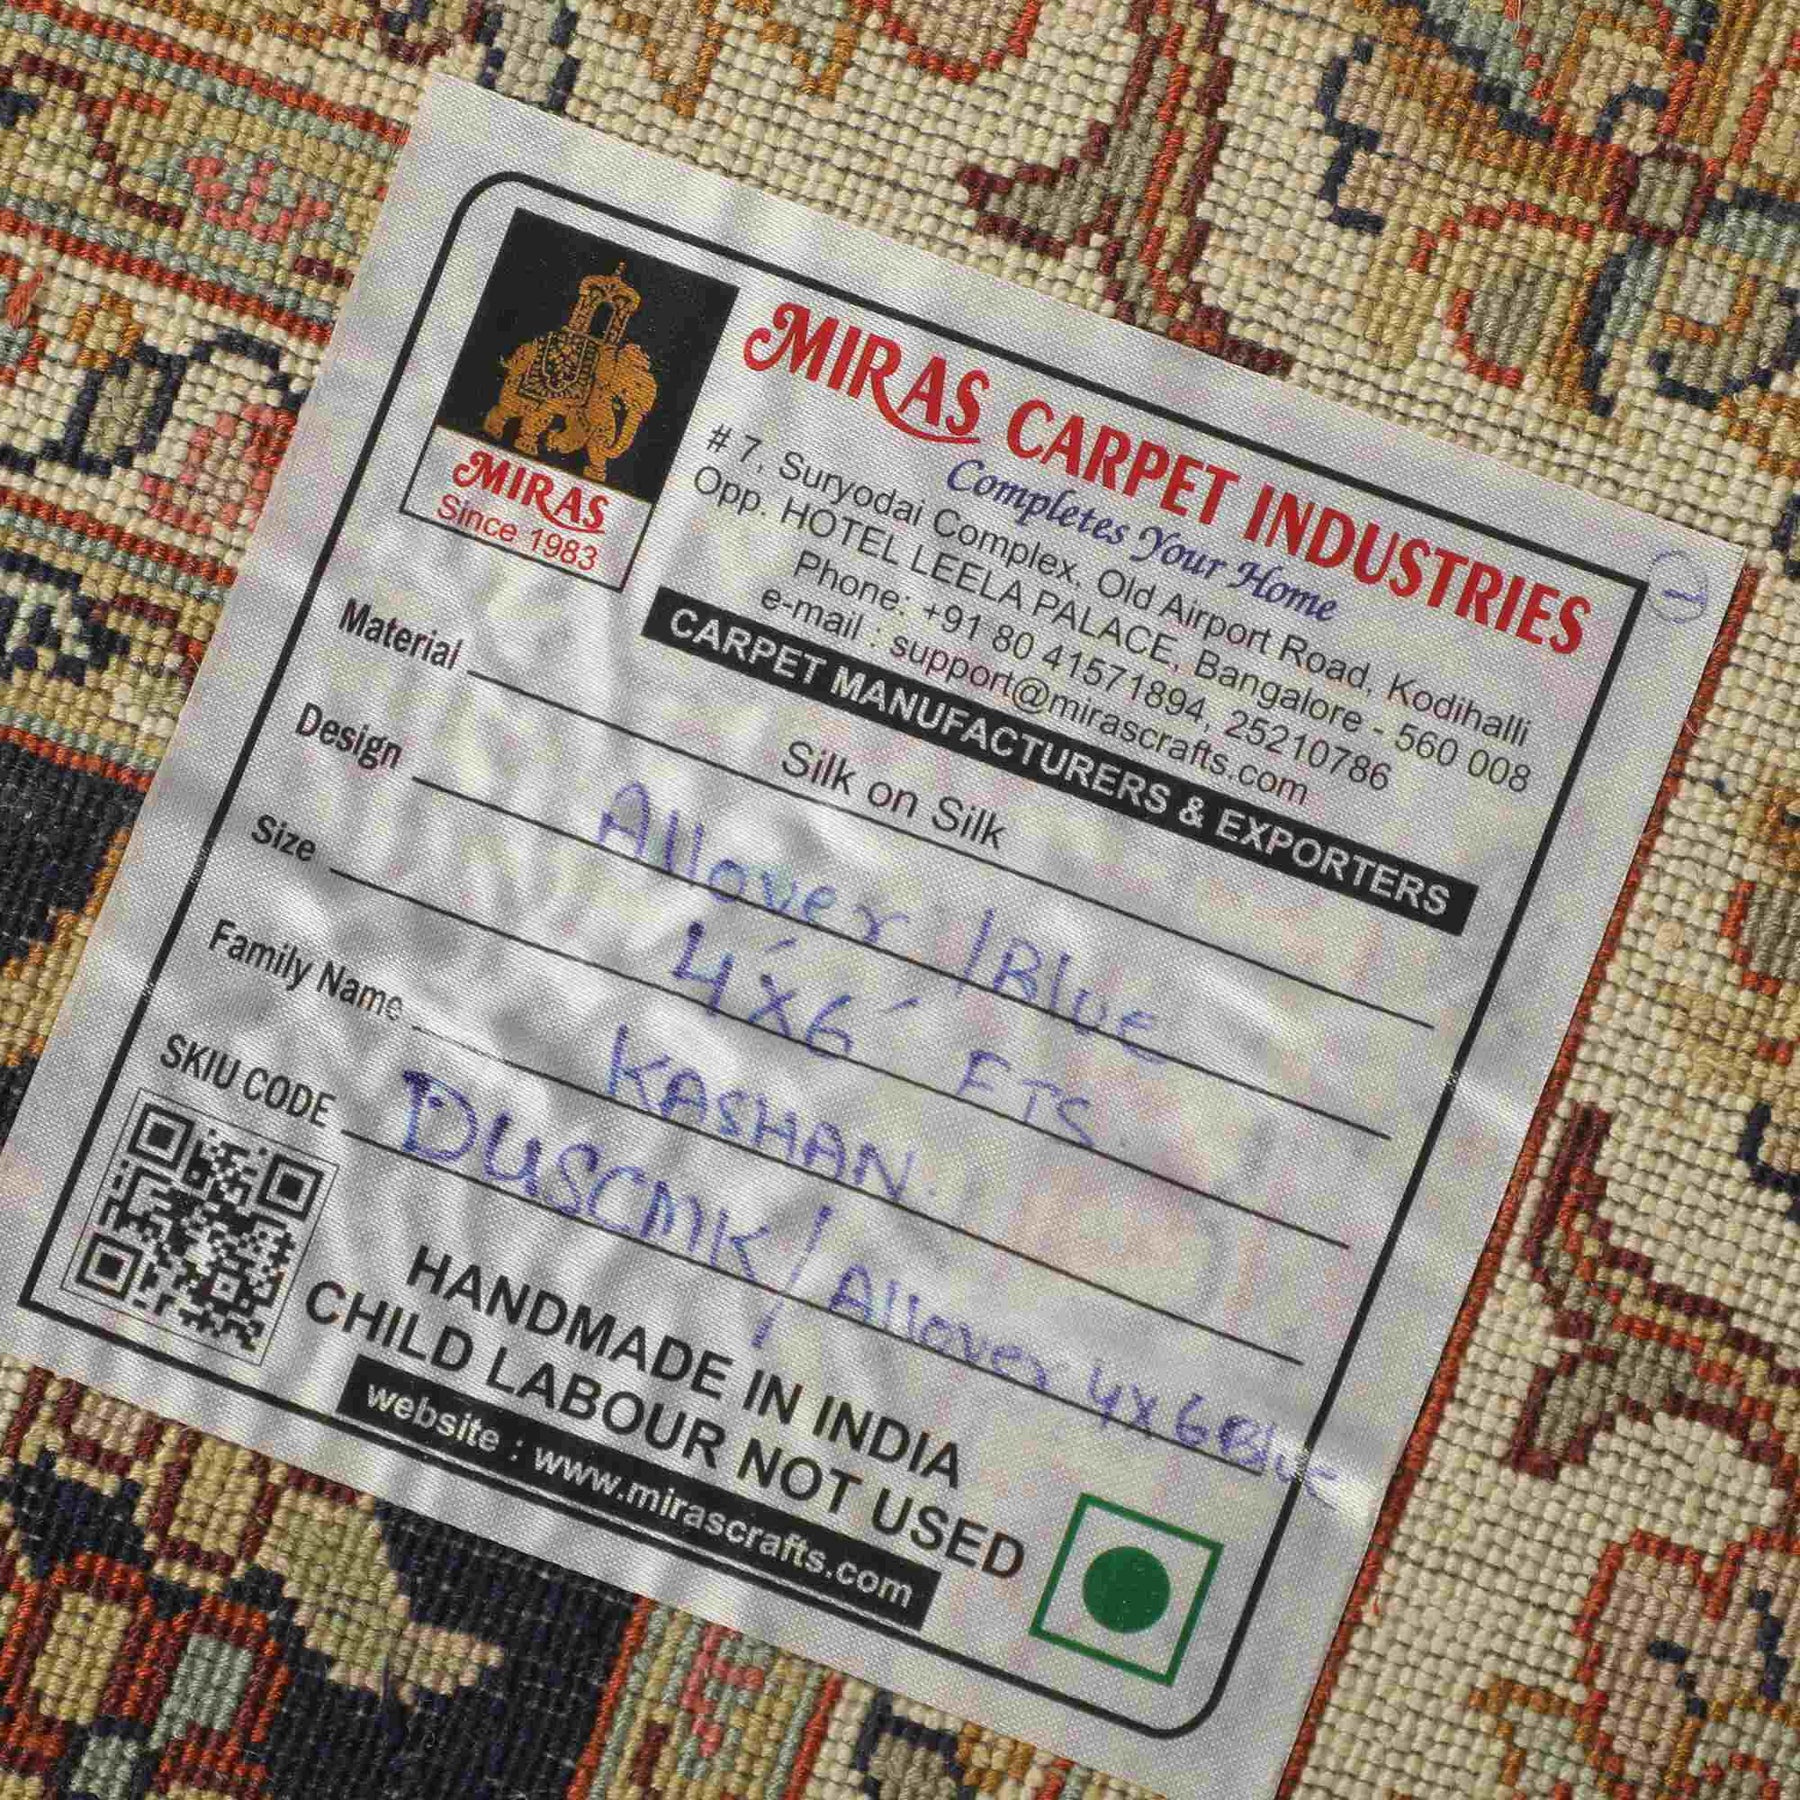 MIRAS
Since 1983
MIRAS CARPET INDUSTRIES
Completes Your Home
# 7, Suryodai Complex, Old Airport Road, Kodihalli
Opp. HOTEL LEELA PALACE, Bangalore - 560 008
Phone: +91 80 41571894, 25210786
e-mail : support@mirascrafts.com
CARPET MANUFACTURERS & EXPORTERS
Material Silk on Silk
Design Allover / Blue
Size 4'x6' FTS.
Family Name KASHAN.
SKIU CODE DUSCMK / Allover 4x6 Blue
HANDMADE IN INDIA
CHILD LABOUR NOT USED
website : www.mirascrafts.com